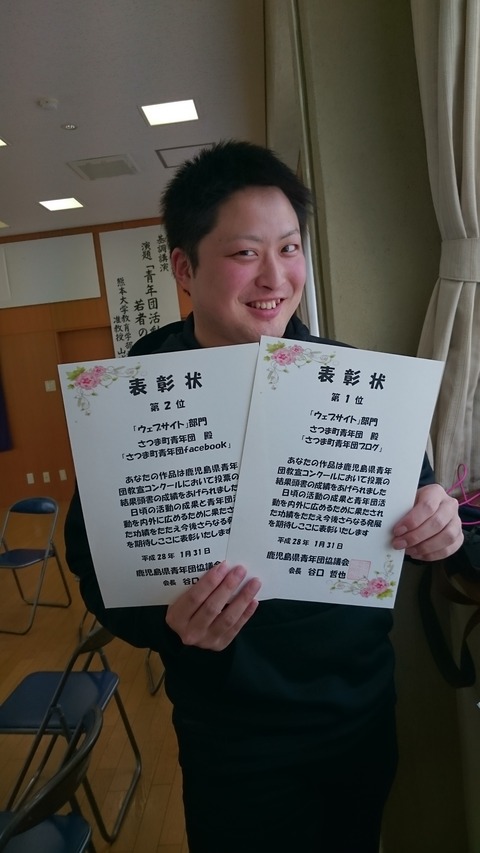 基調講演
演題「青年団活
若者の
熊本大学教育学部
准教授 山
表彰状
第2位
「ウェブサイト」部門
さつま町青年団 殿
「さつま町青年団facebook」
あなたの作品は鹿児島県青年
団教宣コンクールにおいて投票の
結果頭書の成績をあげられました
日頃の活動の成果と青年団活
動を内外に広めるために果たさ
た功績をたたえ今後さらなる発
を期待しここに表彰いたします
平成28年 1月31日
鹿児島県青年団協議会
会長 谷口
表彰状
第1位
「ウェブサイト」部門
さつま町青年団 殿
「さつま町青年団ブログ」
あなたの作品は鹿児島県青年
団教宣コンクールにおいて投票の
結果頭書の成績をあげられました
日頃の活動の成果と青年団活
動を内外に広めるために果たされ
た功績をたたえ今後さらなる発展
を期待しここに表彰いたします
平成28年 1月31日
鹿児島県青年団協議会
会長 谷口 哲也